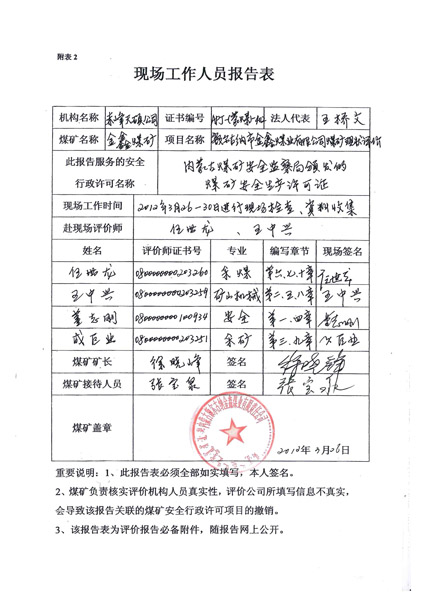 附表2
现场工作人员报告表
机构名称 泰峰天硕公司 证书编号 法人代表 王桥文
煤矿名称 金鑫煤矿 项目名称 额尔古纳市金鑫煤业有限公司煤矿现状评价
此报告服务的安全 内蒙古煤矿安全监察局颁发的
行政许可名称 煤矿安全生产许可证
现场工作时间 2012年3月26-30日进行现场检查、资料收集
赴现场评价师 任世龙、王中兴
姓名 评价师证书号 专业 编写章节 现场签名
任世龙 0800000000203260 采煤 第六.七.十章 任世龙
王中兴 0800000000203259 矿山机械 第二.五.八章 王中兴
董志刚 0800000000100934 安全 第一.四章 董志刚
成臣业 0800000000203251 采矿 第三.九章
煤矿矿长 徐晓峰 签名 徐晓峰
煤矿接待人员 张宝泉 签名 张宝泉
煤矿盖章
2012年3月26日
重要说明：1、此报告表必须全部如实填写，本人签名。
2、煤矿负责核实评价机构人员真实性，评价公司所填写信息不真实，
会导致该报告关联的煤矿安全行政许可项目的撤销。
3、该报告表为评价报告必备附件，随报告网上公开。